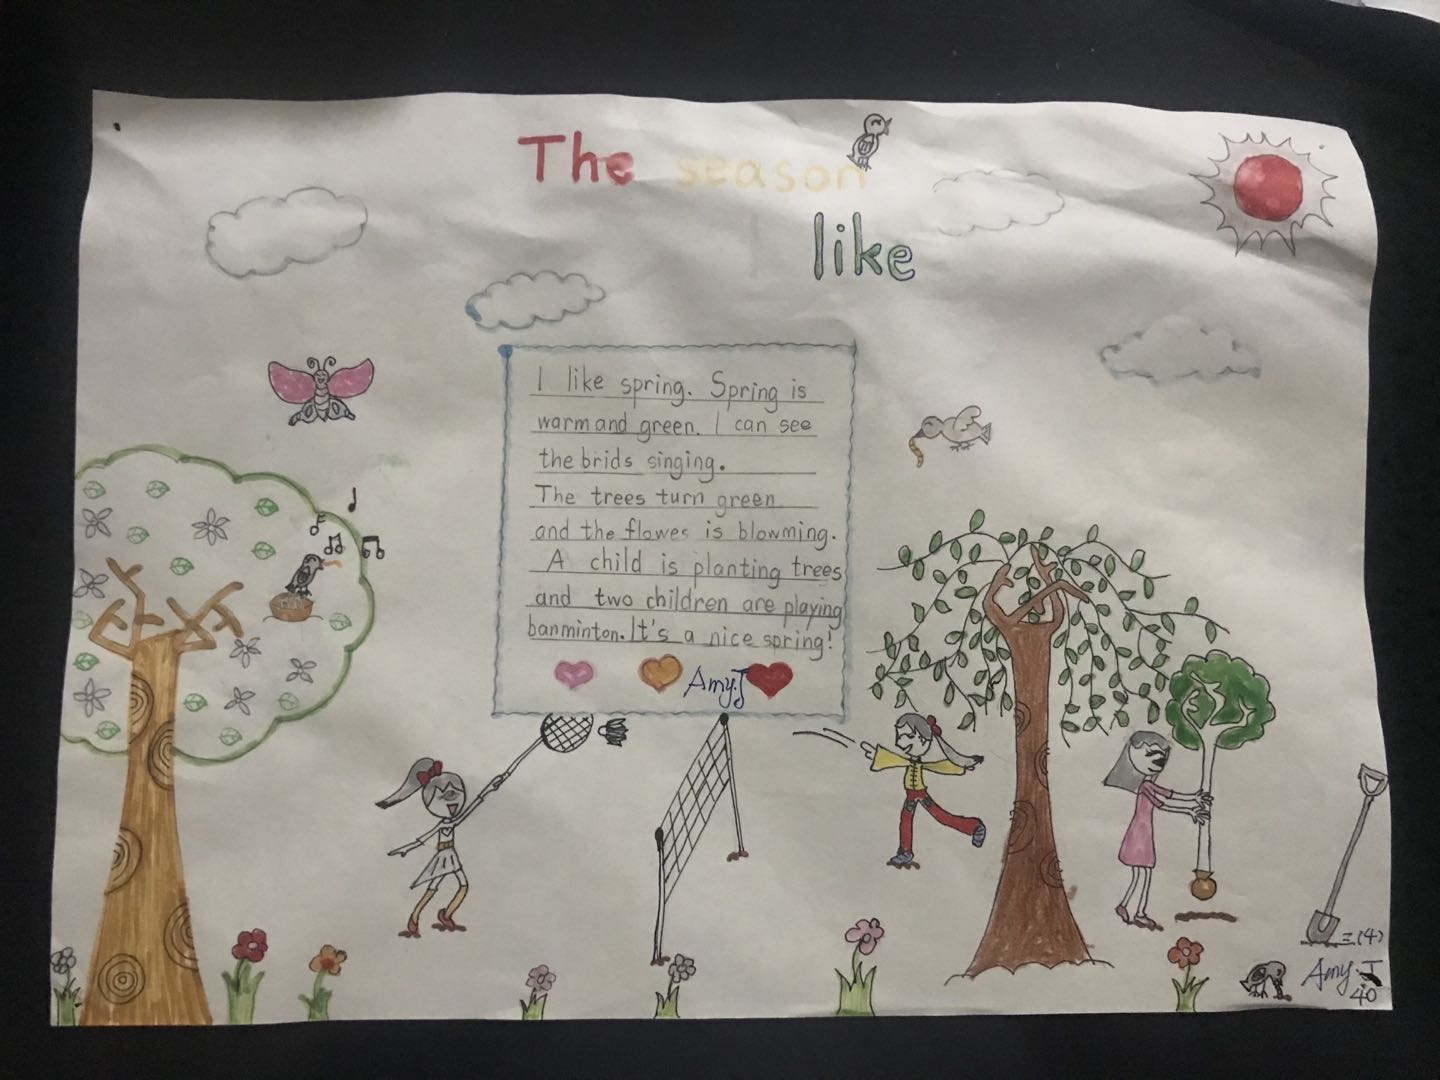 The season
I like
I like spring. Spring is
warm and green. I can see
the brids singing.
The trees turn green
and the flowes is blowming.
A child is planting trees
and two children are playing
banminton. It's a nice spring!
Amy.J
三(4)
Amy.J
40